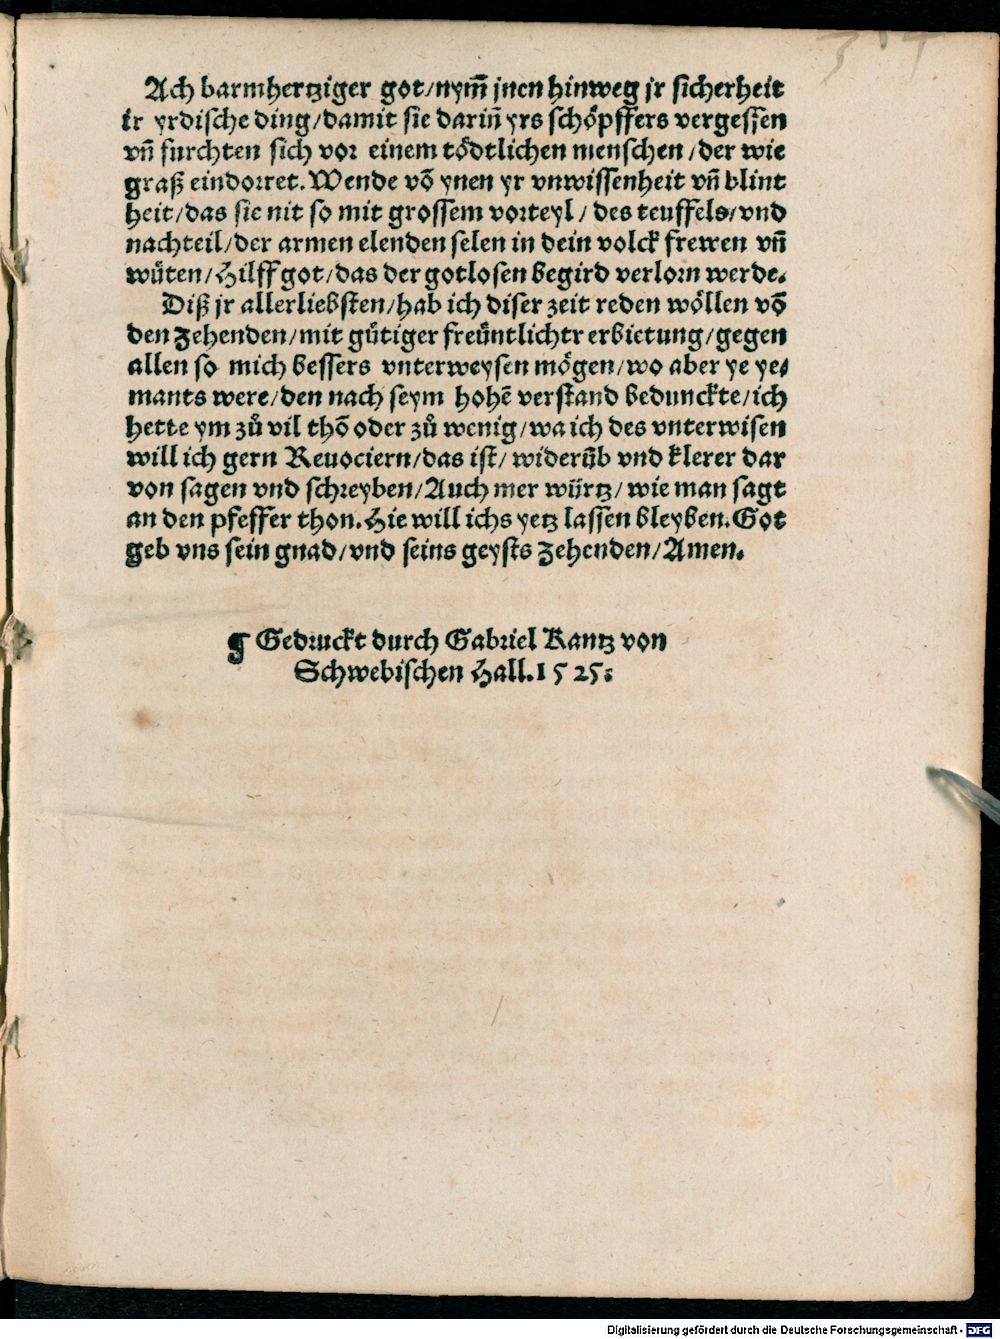 Ach barmhertziger got/nym̃ jnen hinweg jr sicherheit
ir yrdische ding/damit sie dariñ yrs schöpffers vergessen
vñ furchten sich vor einem tödtlichen menschen/der wie
graß eindorret. Wende võ ynen yr vnwissenheit vñ blint
heit/das sie nit so mit grossem vorteyl/des teuffels/vnd
nachteil/der armen elenden selen in dein volck frewen vñ
wüten/Hilff got/das der gotlosen begird verlorn werde.
Diß jr allerliebsten/hab ich diser zeit reden wöllen võ
den Zehenden/mit gütiger freüntlichtr erbietung/gegen
allen so mich bessers vnterweysen mögen/wo aber ye ye-
mants were/den nach seym hohẽ verstand bedunckte/ich
hette ym zů vil thõ oder zů wenig/wa ich des vnterwisen
will ich gern Reuociern/das ist/widerũb vnd klerer dar
von sagen vnd schreyben/Auch mer würtz/wie man sagt
an den pfeffer thon. Hie will ichs yetz lassen bleyben. Got
geb vns sein gnad/vnd seins geysts Zehenden/Amen.
¶ Gedruckt durch Gabriel Kantz von
Schwebischen Hall. 1525.
Digitalisierung gefördert durch die Deutsche Forschungsgemeinschaft - DFG